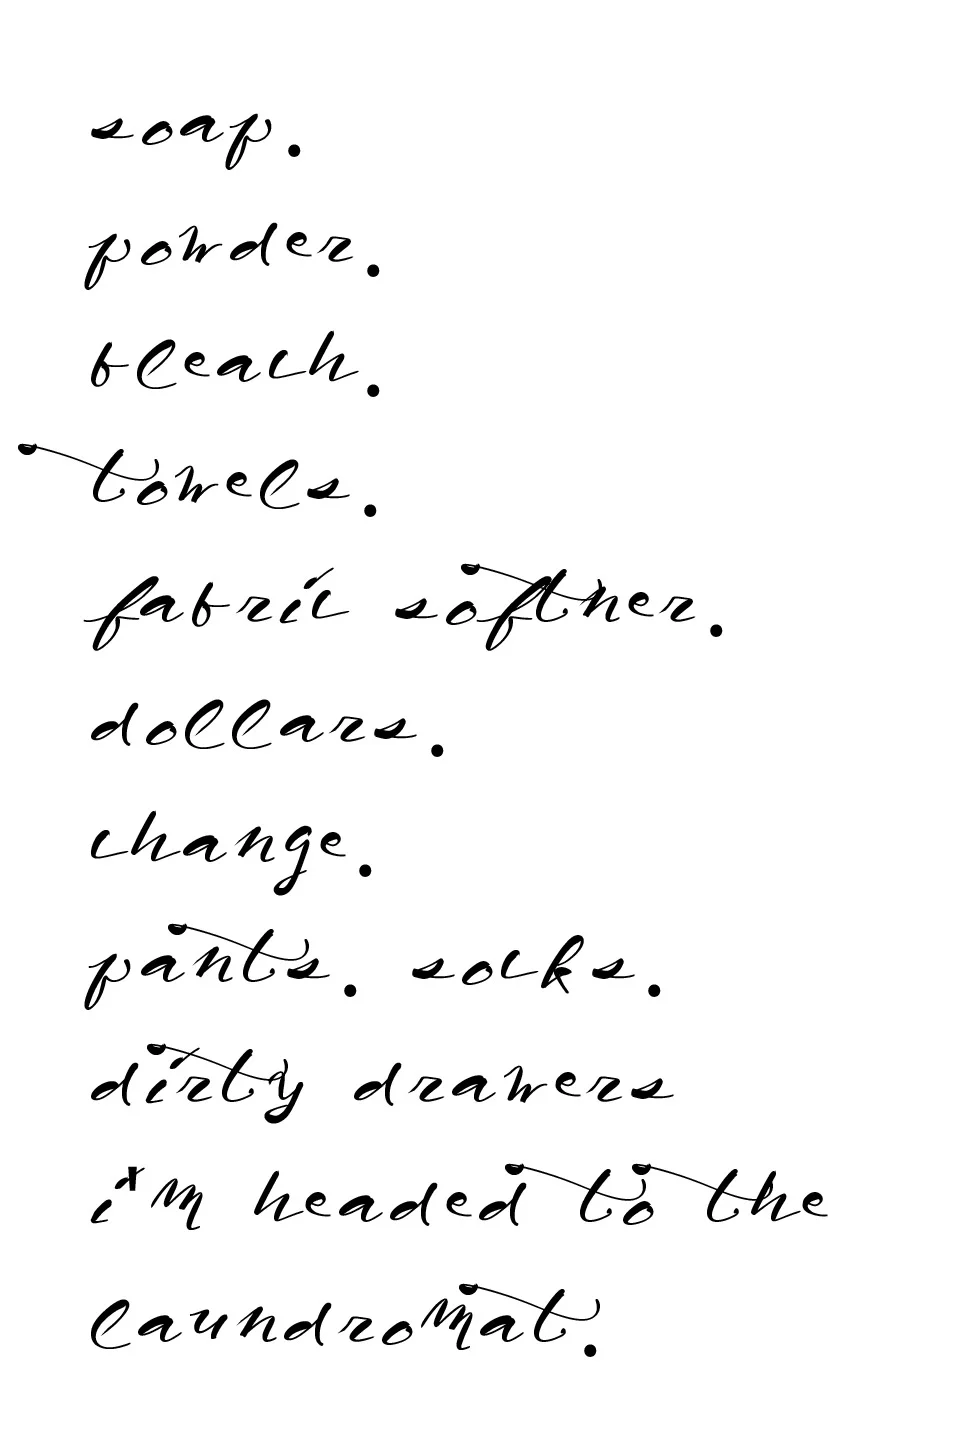 soap.
powder.
bleach.
towels.
fabric softner.
dollars.
change.
pants. socks.
dirty drawers
i'm headed to the
laundromat.